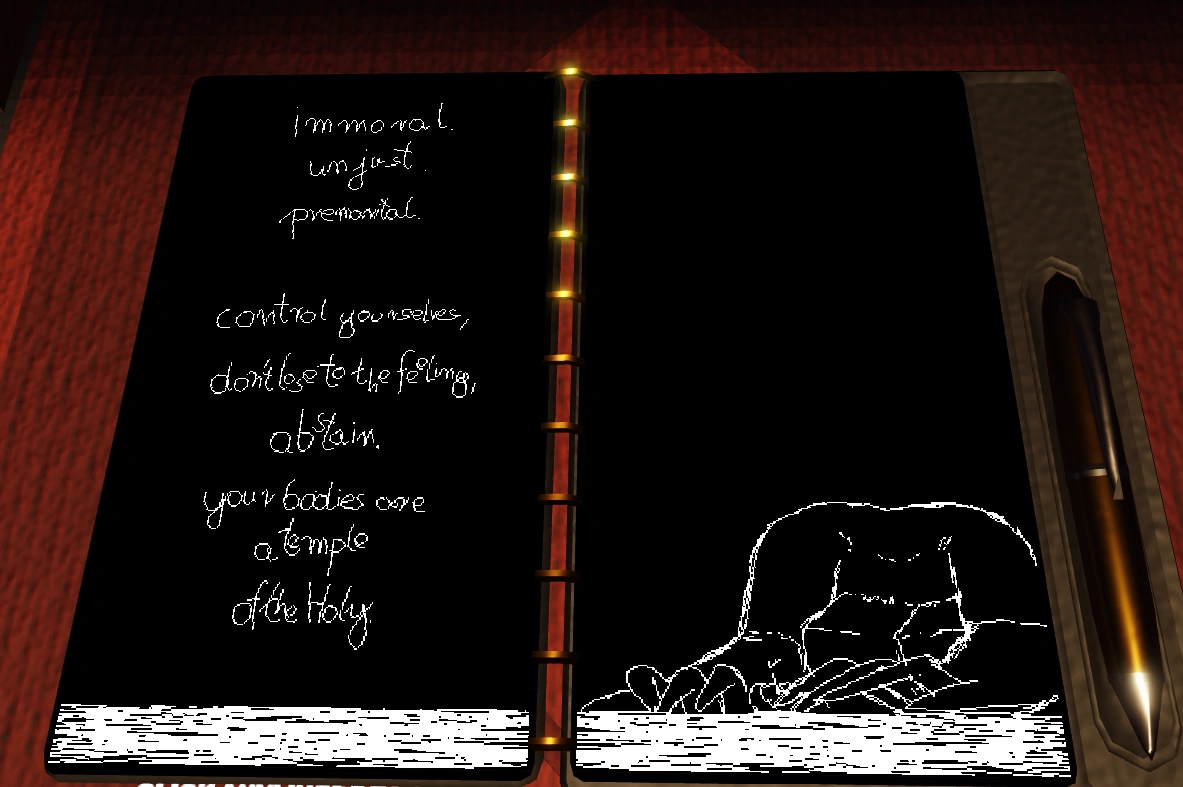 immoral.
unjust.
premarital.
control yourselves,
don't lose to the feeling,
abstain.
your bodies are
a temple
of the Holy.